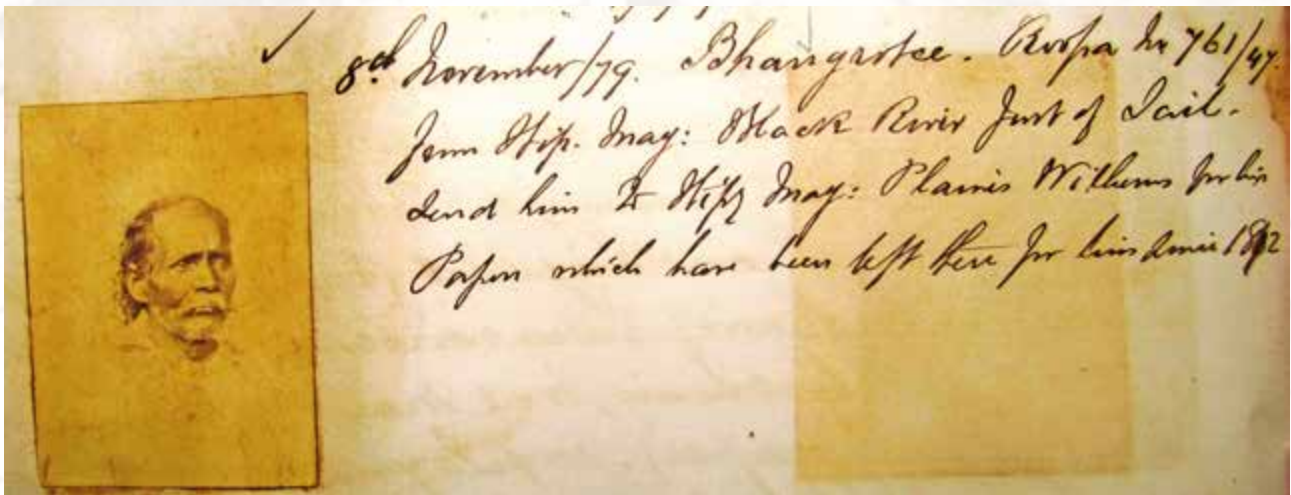 8th November/79. Bhangrotee. Roopa No 761/47.
from Stip. Mag: Black River Just of Jail.
Send him to Stipy Mag: Plaines Wilhems for his
Papers which have been left there for him since 18